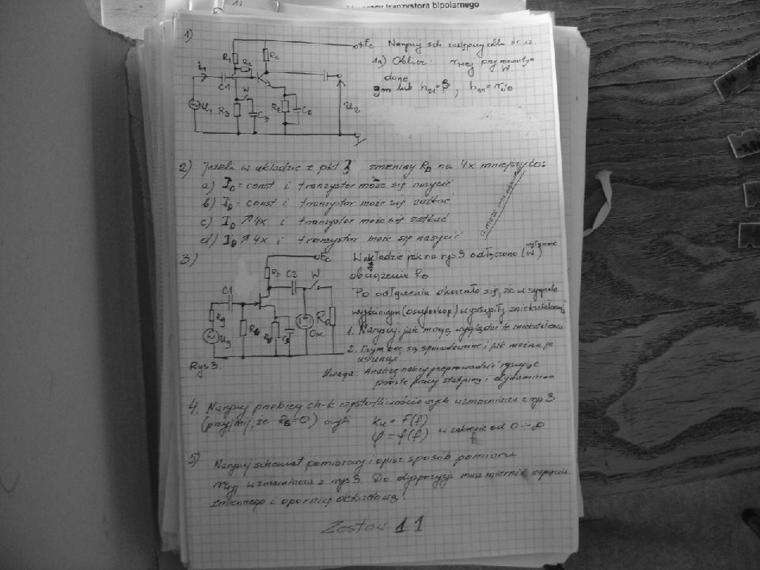 tranzystora bipolarnego
1)
R1
Rc
C1
W
R3
CE
U1
U2
Narysuj sch zastępczy dla
1a) Oblicz:
dane
gm lub h21=β, h11=
2) Jeżeli w układzie z pkt 3 zmienimy RD na 4x mniejszy to:
a) ID=const i tranzystor może się nasycić
b) ID=const i tranzystor może się zatkać
c) ID ↗4x i tranzystor może się zatkać
d) ID ↗4x i tranzystor może się nasycić
3)
C1
C2
W
Rg
Ug
Rys 3.
W układzie jak na rys 3 odłączono (W)
obciążenie Ro
Po odłączeniu okazało się, że w sygnale
wyjściowym (oscyloskop) wystąpiły zniekształcenia
1. Narysuj jak mogą wyglądać te zniekształcenia
2. Czym one są spowodowane i jak można je
usunąć
Uwaga: Analizę należy przeprowadzić rysując
proste pracy statyczną i dynamiczną
4. Narysuj przebiegi ch-k częstotliwościowych wzmacniacza z rys 3.
(przyjmij, że =0) czyli ku = F(f)
φ = f(f) w zakresie od 0 ÷ ∞
5) Narysuj schemat pomiarowy i opisz sposób pomiaru
rwyj wzmacniacza z rys 3. Do dyspozycji masz miernik napięcia
zmiennego i opornicę dekadową!
Zestaw 11